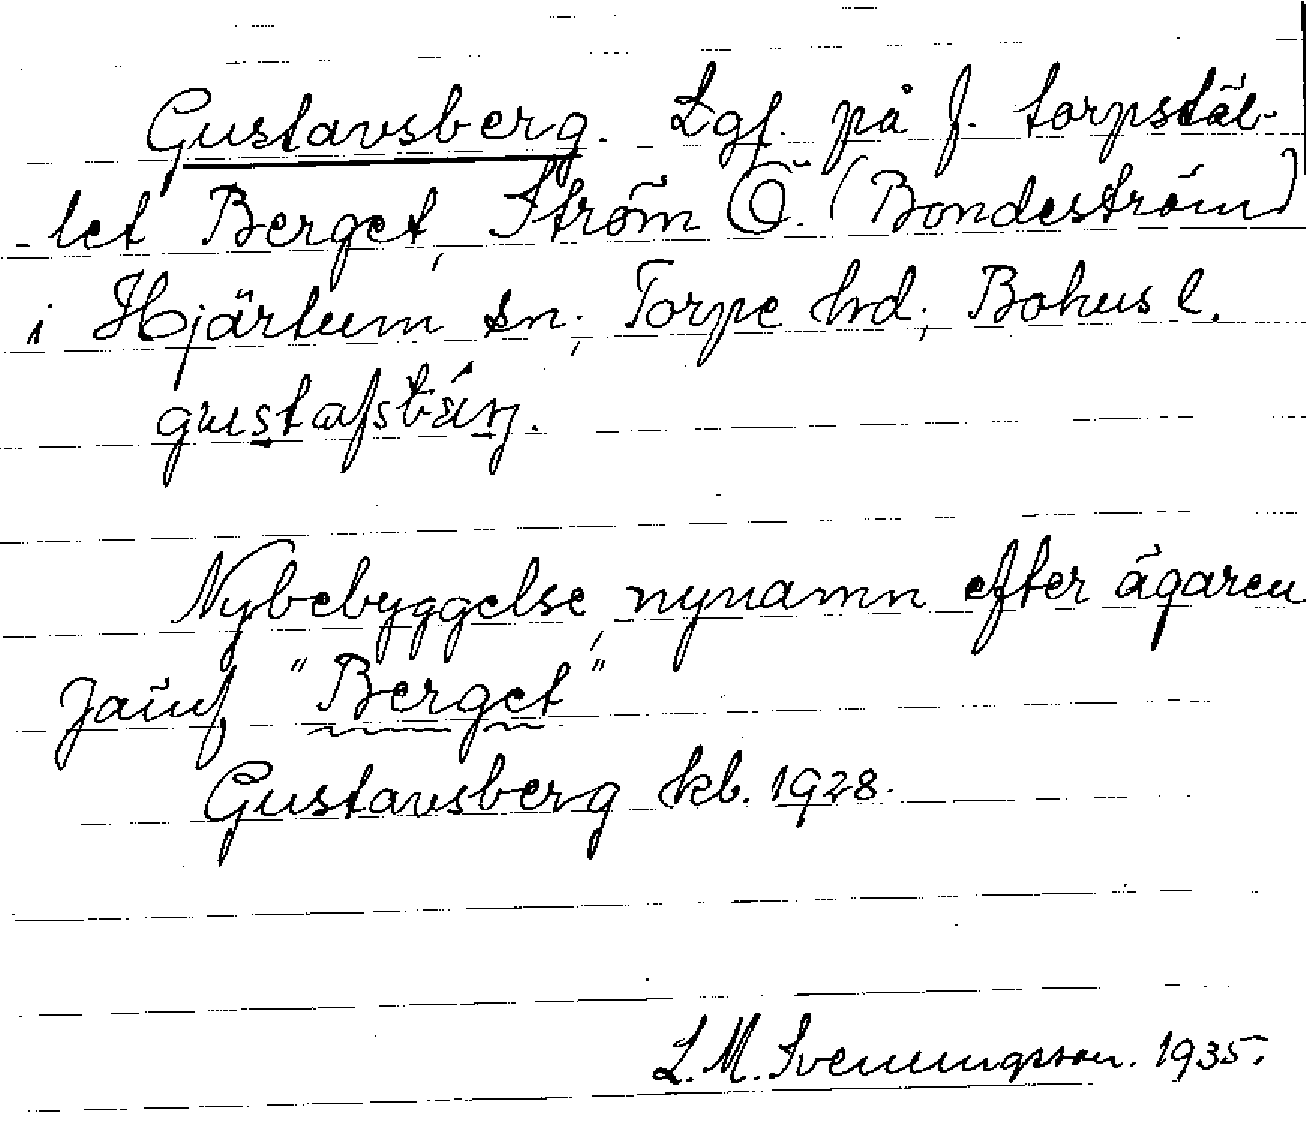 Gustavsberg. Lgf. på f. torpstäl-
let Berget, Ström Ö. (Bondeström)
i Hjärtum sn; Torpe hd; Bohus l.
gustafsbärj.
Nybebyggelse, nynamn efter ägaren
Jämf "Berget"
Gustavsberg kb. 1928.
L. M. Svenungsson. 1935.